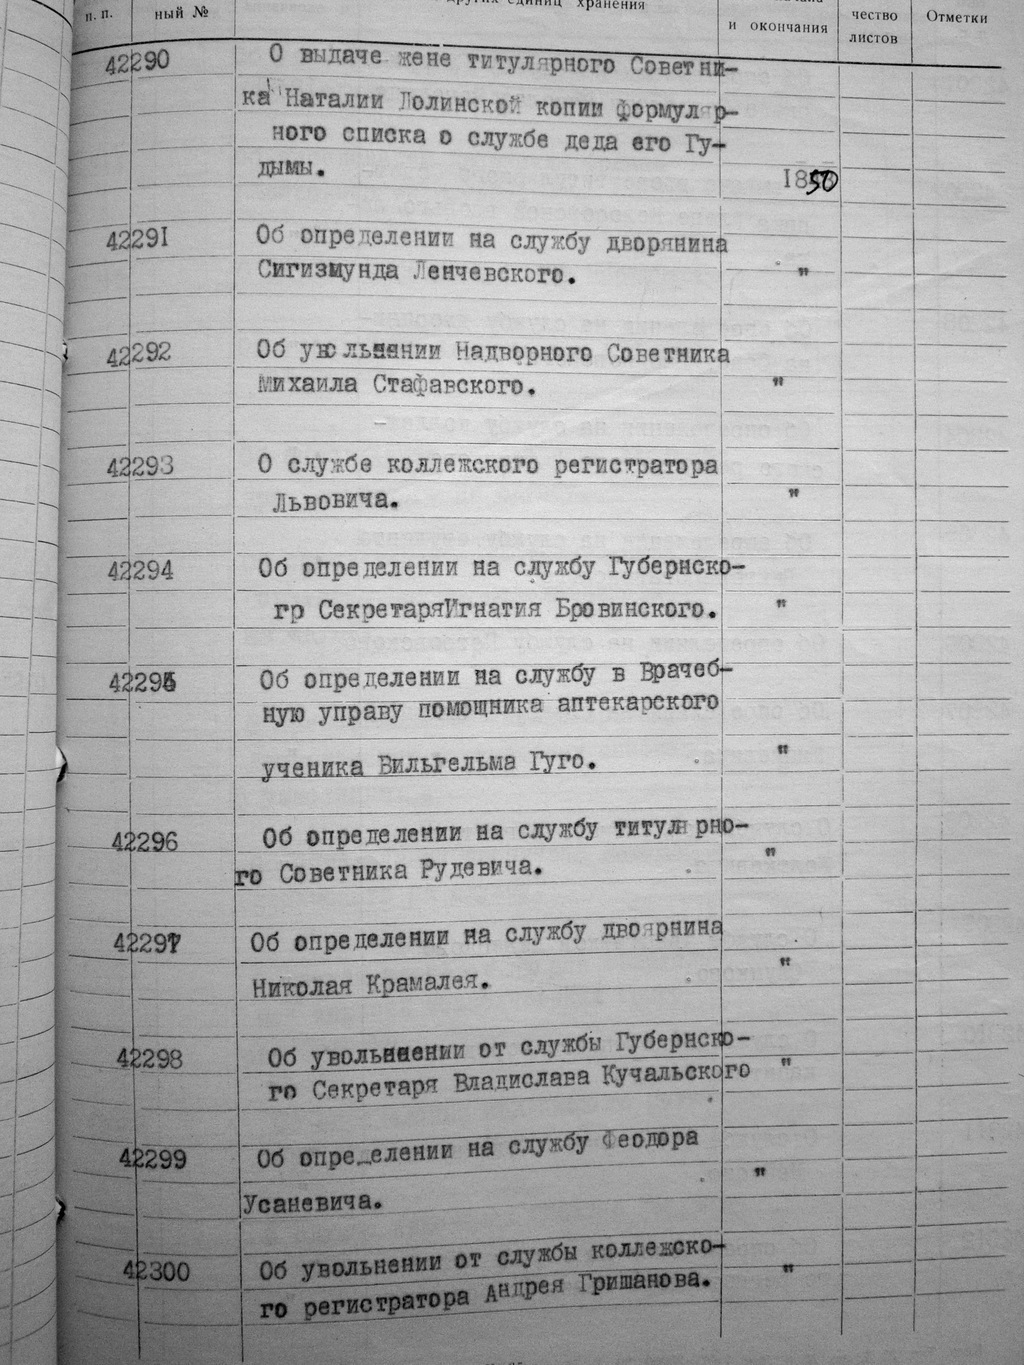 п. п. ный № других единиц хранения и окончания чество листов Отметки
42290 О выдаче жене титулярного Советни-
ка Наталии Долинской копии формуляр-
ного списка о службе деда его Гу-
дымы. 1850
42291 Об определении на службу дворянина
Сигизмунда Ленчевского. "
42292 Об увольнении Надворного Советника
Михаила Стафавского. "
42293 О службе коллежского регистратора
Львовича. "
42294 Об определении на службу Губернско-
го СекретаряИгнатия Бровинского. "
42295 Об определении на службу в Врачеб-
ную управу помощника аптекарского
ученика Вильгельма Гуго. "
42296 Об определении на службу титулярно-
го Советника Рудевича. "
42297 Об определении на службу двоярнина
Николая Крамалея. "
42298 Об увольнении от службы Губернско-
го Секретаря Владислава Кучальского "
42299 Об определении на службу Феодора
Усаневича. "
42300 Об увольнении от службы коллежско-
го регистратора Андрея Гришанова. "